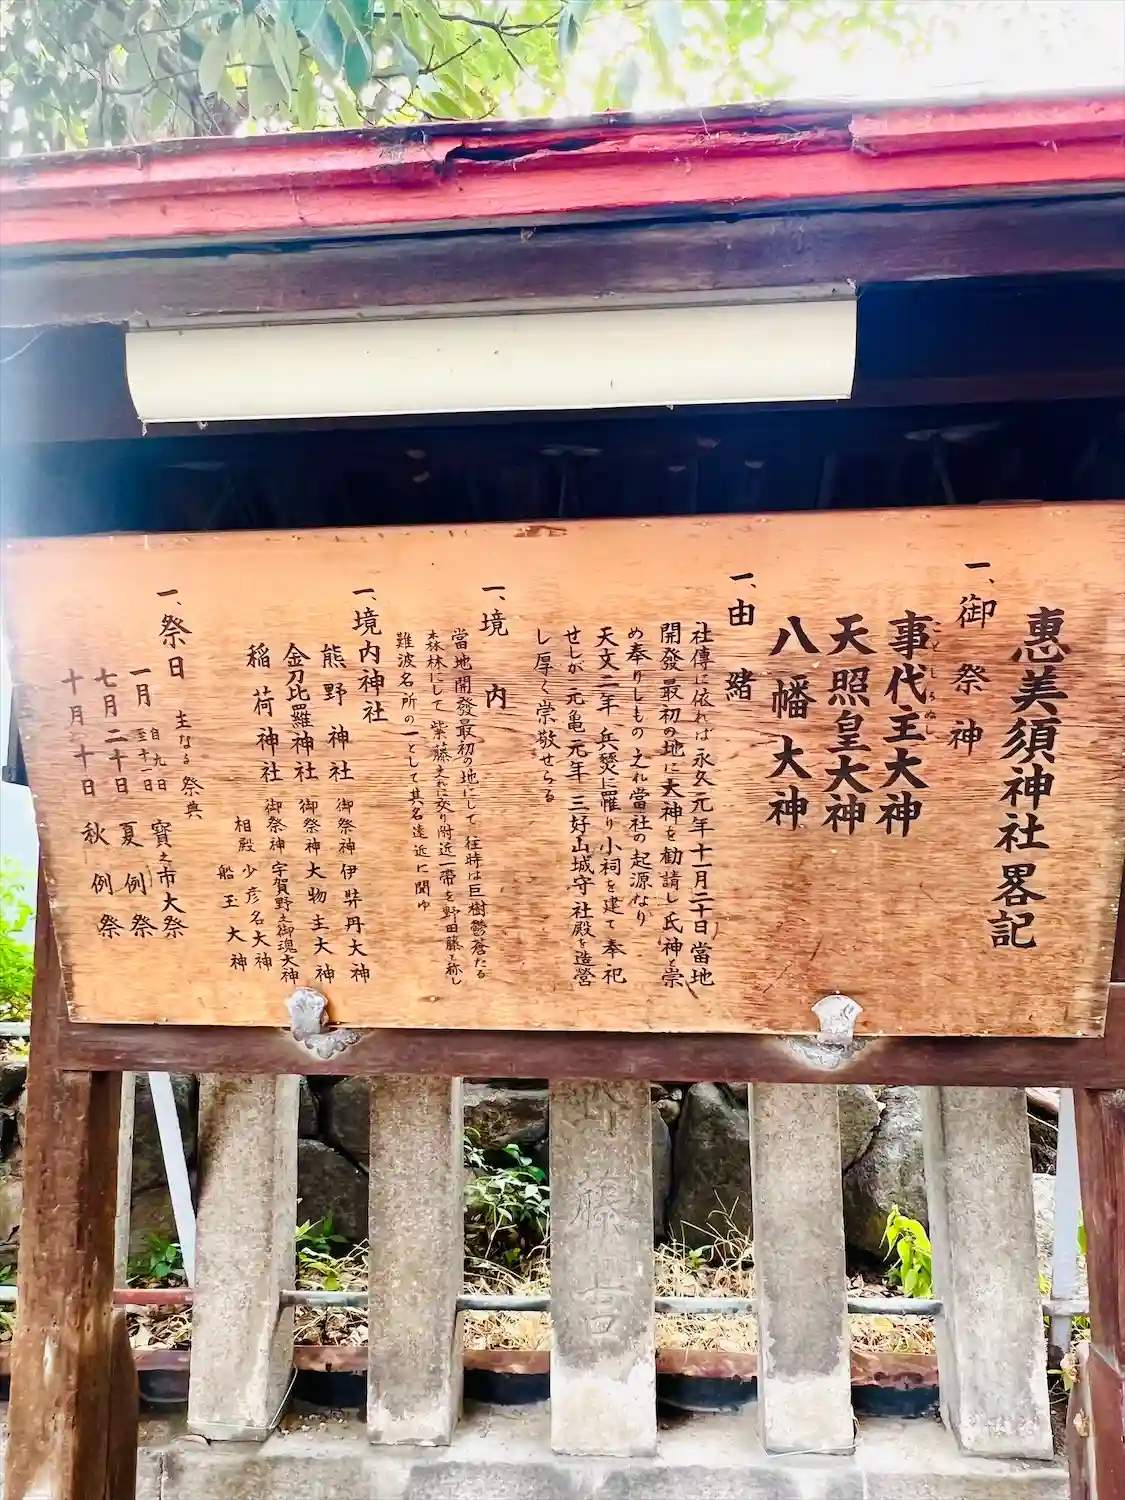 惠美須神社畧記
一、御祭神
事代主大神
ことしろぬし
天照皇大神
八幡大神
一、由緒
社傳に依れば永久元年十一月二十日當地
開發最初の地に大神を勧請し氏神と崇
め奉りしもの之れ當社の起源なり
天文二年兵燹に罹り小祠を建て奉祀
せしが元亀元年三好山城守社殿を造營
し厚く崇敬せらる
一、境内
當地開發最初の地にして往時は巨樹鬱蒼たる
森林にして紫藤之れに交り附近一帯を野田藤と称し
難波名所の一として其名遠近に聞ゆ
一、境内神社
熊野神社 御祭神 伊弉丹大神
金刀比羅神社 御祭神 大物主大神
稲荷神社 御祭神 宇賀野之御魂大神
相殿 少彦名大神
船玉大神
一、祭日 主なる祭典
一月 自九日 至十一日 寶之市大祭
七月二十日 夏例祭
十月二十日 秋例祭
藤吉